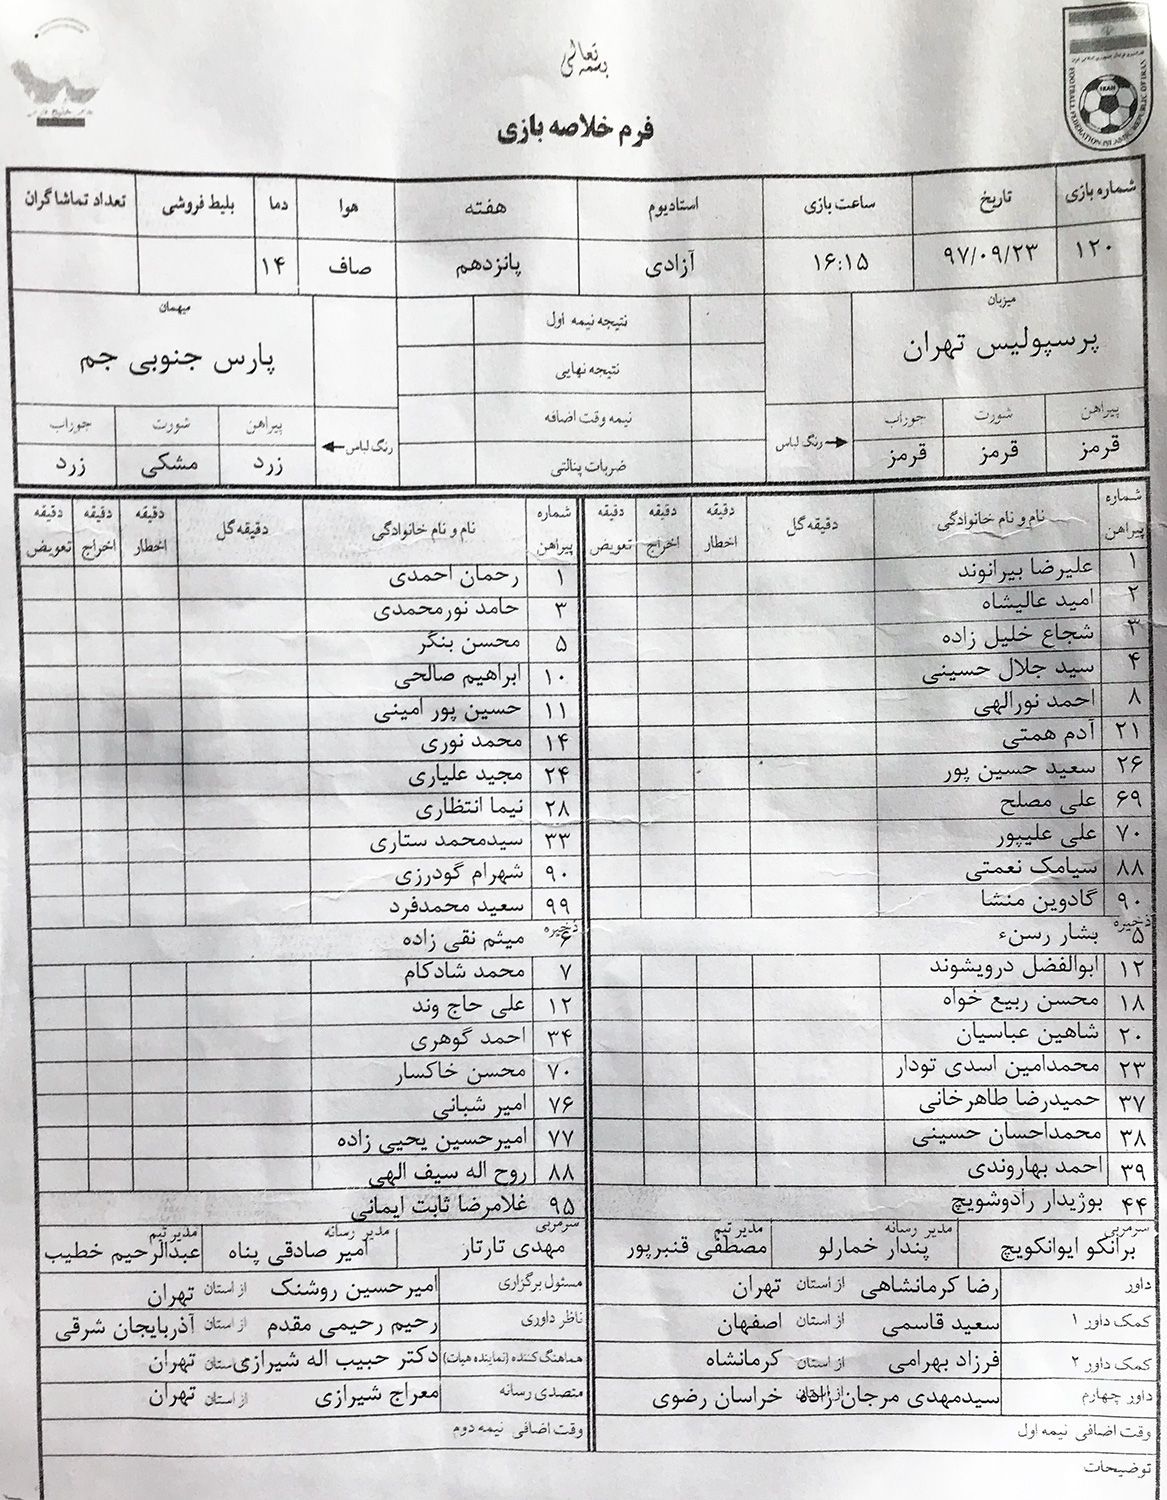 بسمه تعالی
فرم خلاصه بازی
FOOTBALL FEDERATION ISLAMIC REPUBLIC OF IRAN
IRAN
شماره بازی تاریخ ساعت بازی استادیوم هفته هوا دما بلیط فروشی تعداد تماشاگران
۱۲۰ ۹۷/۰۹/۲۳ ۱۶:۱۵ آزادی پانزدهم صاف ۱۴
میزبان میهمان
پرسپولیس تهران پارس جنوبی جم
نتیجه نیمه اول
نتیجه نهایی
نیمه وقت اضافه
ضربات پنالتی
پیراهن شورت جوراب رنگ لباس رنگ لباس پیراهن شورت جوراب
قرمز قرمز قرمز زرد مشکی زرد
شماره پیراهن نام و نام خانوادگی دقیقه گل دقیقه اخطار دقیقه اخراج دقیقه تعویض شماره پیراهن نام و نام خانوادگی دقیقه گل دقیقه اخطار دقیقه اخراج دقیقه تعویض
۱ علیرضا بیرانوند ۱ رحمان احمدی
۲ امید عالیشاه ۳ حامد نورمحمدی
۳ شجاع خلیل زاده ۵ محسن بنگر
۴ سید جلال حسینی ۱۰ ابراهیم صالحی
۸ احمد نورالهی ۱۱ حسین پور امینی
۲۱ آدم همتی ۱۴ محمد نوری
۲۶ سعید حسین پور ۲۴ مجید علیاری
۶۹ علی مصلح ۲۸ نیما انتظاری
۷۰ علی علیپور ۳۳ سیدمحمد ستاری
۸۸ سیامک نعمتی ۹۰ شهرام گودرزی
۹۰ گادوین منشا ۹۹ سعید محمدفرد
ذخیره ذخیره
۵ بشار رسنء ۶ میثم نقی زاده
۱۲ ابوالفضل درویشوند ۷ محمد شادکام
۱۸ محسن ربیع خواه ۱۲ علی حاج وند
۲۰ شاهین عباسیان ۳۴ احمد گوهری
۲۳ محمدامین اسدی تودار ۷۰ محسن خاکسار
۳۷ حمیدرضا طاهرخانی ۷۶ امیر شبانی
۳۸ محمداحسان حسینی ۷۷ امیرحسین یحیی زاده
۳۹ احمد بهاروندی ۸۸ روح اله سیف الهی
۴۴ بوژیدار رادوشویچ ۹۵ غلامرضا ثابت ایمانی
سرمربی مدیر رسانه مدیر تیم سرمربی مدیر رسانه مدیر تیم
برانکو ایوانکویچ پندار خمارلو مصطفی قنبرپور مهدی تارتار امیر صادقی پناه عبدالرحیم خطیب
داور رضا کرمانشاهی از استان تهران مسئول برگزاری امیرحسین روشنک از استان تهران
کمک داور ۱ سعید قاسمی از استان اصفهان ناظر داوری رحیم رحیمی مقدم از استان آذربایجان شرقی
کمک داور ۲ فرزاد بهرامی از استان کرمانشاه هماهنگ کننده (نماینده هیات) دکتر حبیب اله شیرازی از استان تهران
داور چهارم سیدمهدی مرجان زاده از استان خراسان رضوی متصدی رسانه معراج شیرازی از استان تهران
وقت اضافی نیمه اول وقت اضافی نیمه دوم
توضیحات